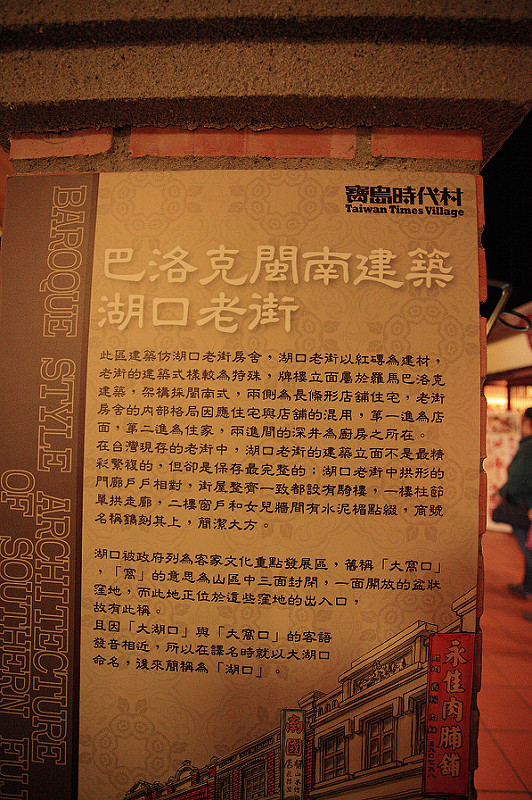 寶島時代村
Taiwan Times Village
巴洛克閩南建築
湖口老街
BAROQUE STYLE ARCHITECTURE
OF SOUTHERN FUJ
此區建築仿湖口老街房舍，湖口老街以紅磚為建材，
老街的建築式樣較為特殊，牌樓立面屬於羅馬巴洛克
建築，架構採閩南式，兩側為長條形店舖住宅，老街
房舍的內部格局因應住宅與店舖的混用，第一進為店
面，第二進為住家，兩進間的深井為廚房之所在。
在台灣現存的老街中，湖口老街的建築立面不是最精
彩繁複的，但卻是保存最完整的；湖口老街中拱形的
門廊戶戶相對，街屋整齊一致都設有騎樓，一樓柱節
單拱走廊，二樓窗戶和女兒牆間有水泥楣點綴，商號
名稱鐫刻其上，簡潔大方。
湖口被政府列為客家文化重點發展區，舊稱「大窩口」
，「窩」的意思為山區中三面封閉，一面開放的盆狀
窪地，而此地正位於這些窪地的出入口，
故有此稱。
且因「大湖口」與「大窩口」的客語
發音相近，所以在譯名時就以大湖口
命名，後來簡稱為「湖口」。
永佳肉脯舖
南國